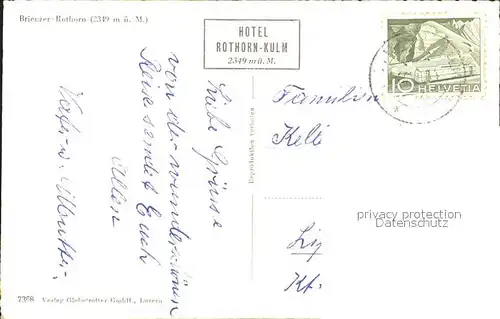 Brienzer-Rothorn (2349 m ü. M.)
HOTEL
ROTHORN-KULM
2349 m ü. M.
10
HELVETIA
Liebe Grüsse
von der wunderschönen
Reise sendet Euch
Allen
Vater u. Mutter.
Familien
Kell
Kt.
Reproduktion verboten
privacy protection
Datenschutz
7368 Verlag Globetrotter GmbH., Luzern